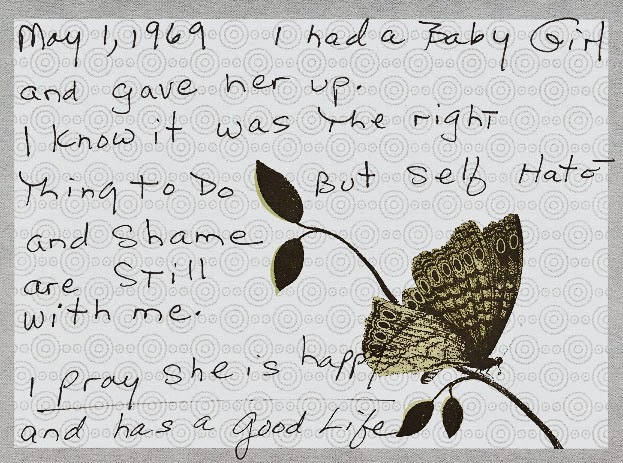 May 1, 1969 I had a Baby Girl
and gave her up.
I know it was the right
Thing to Do But self Hate
and Shame
are Still
with me.
I pray she is happy
and has a Good Life